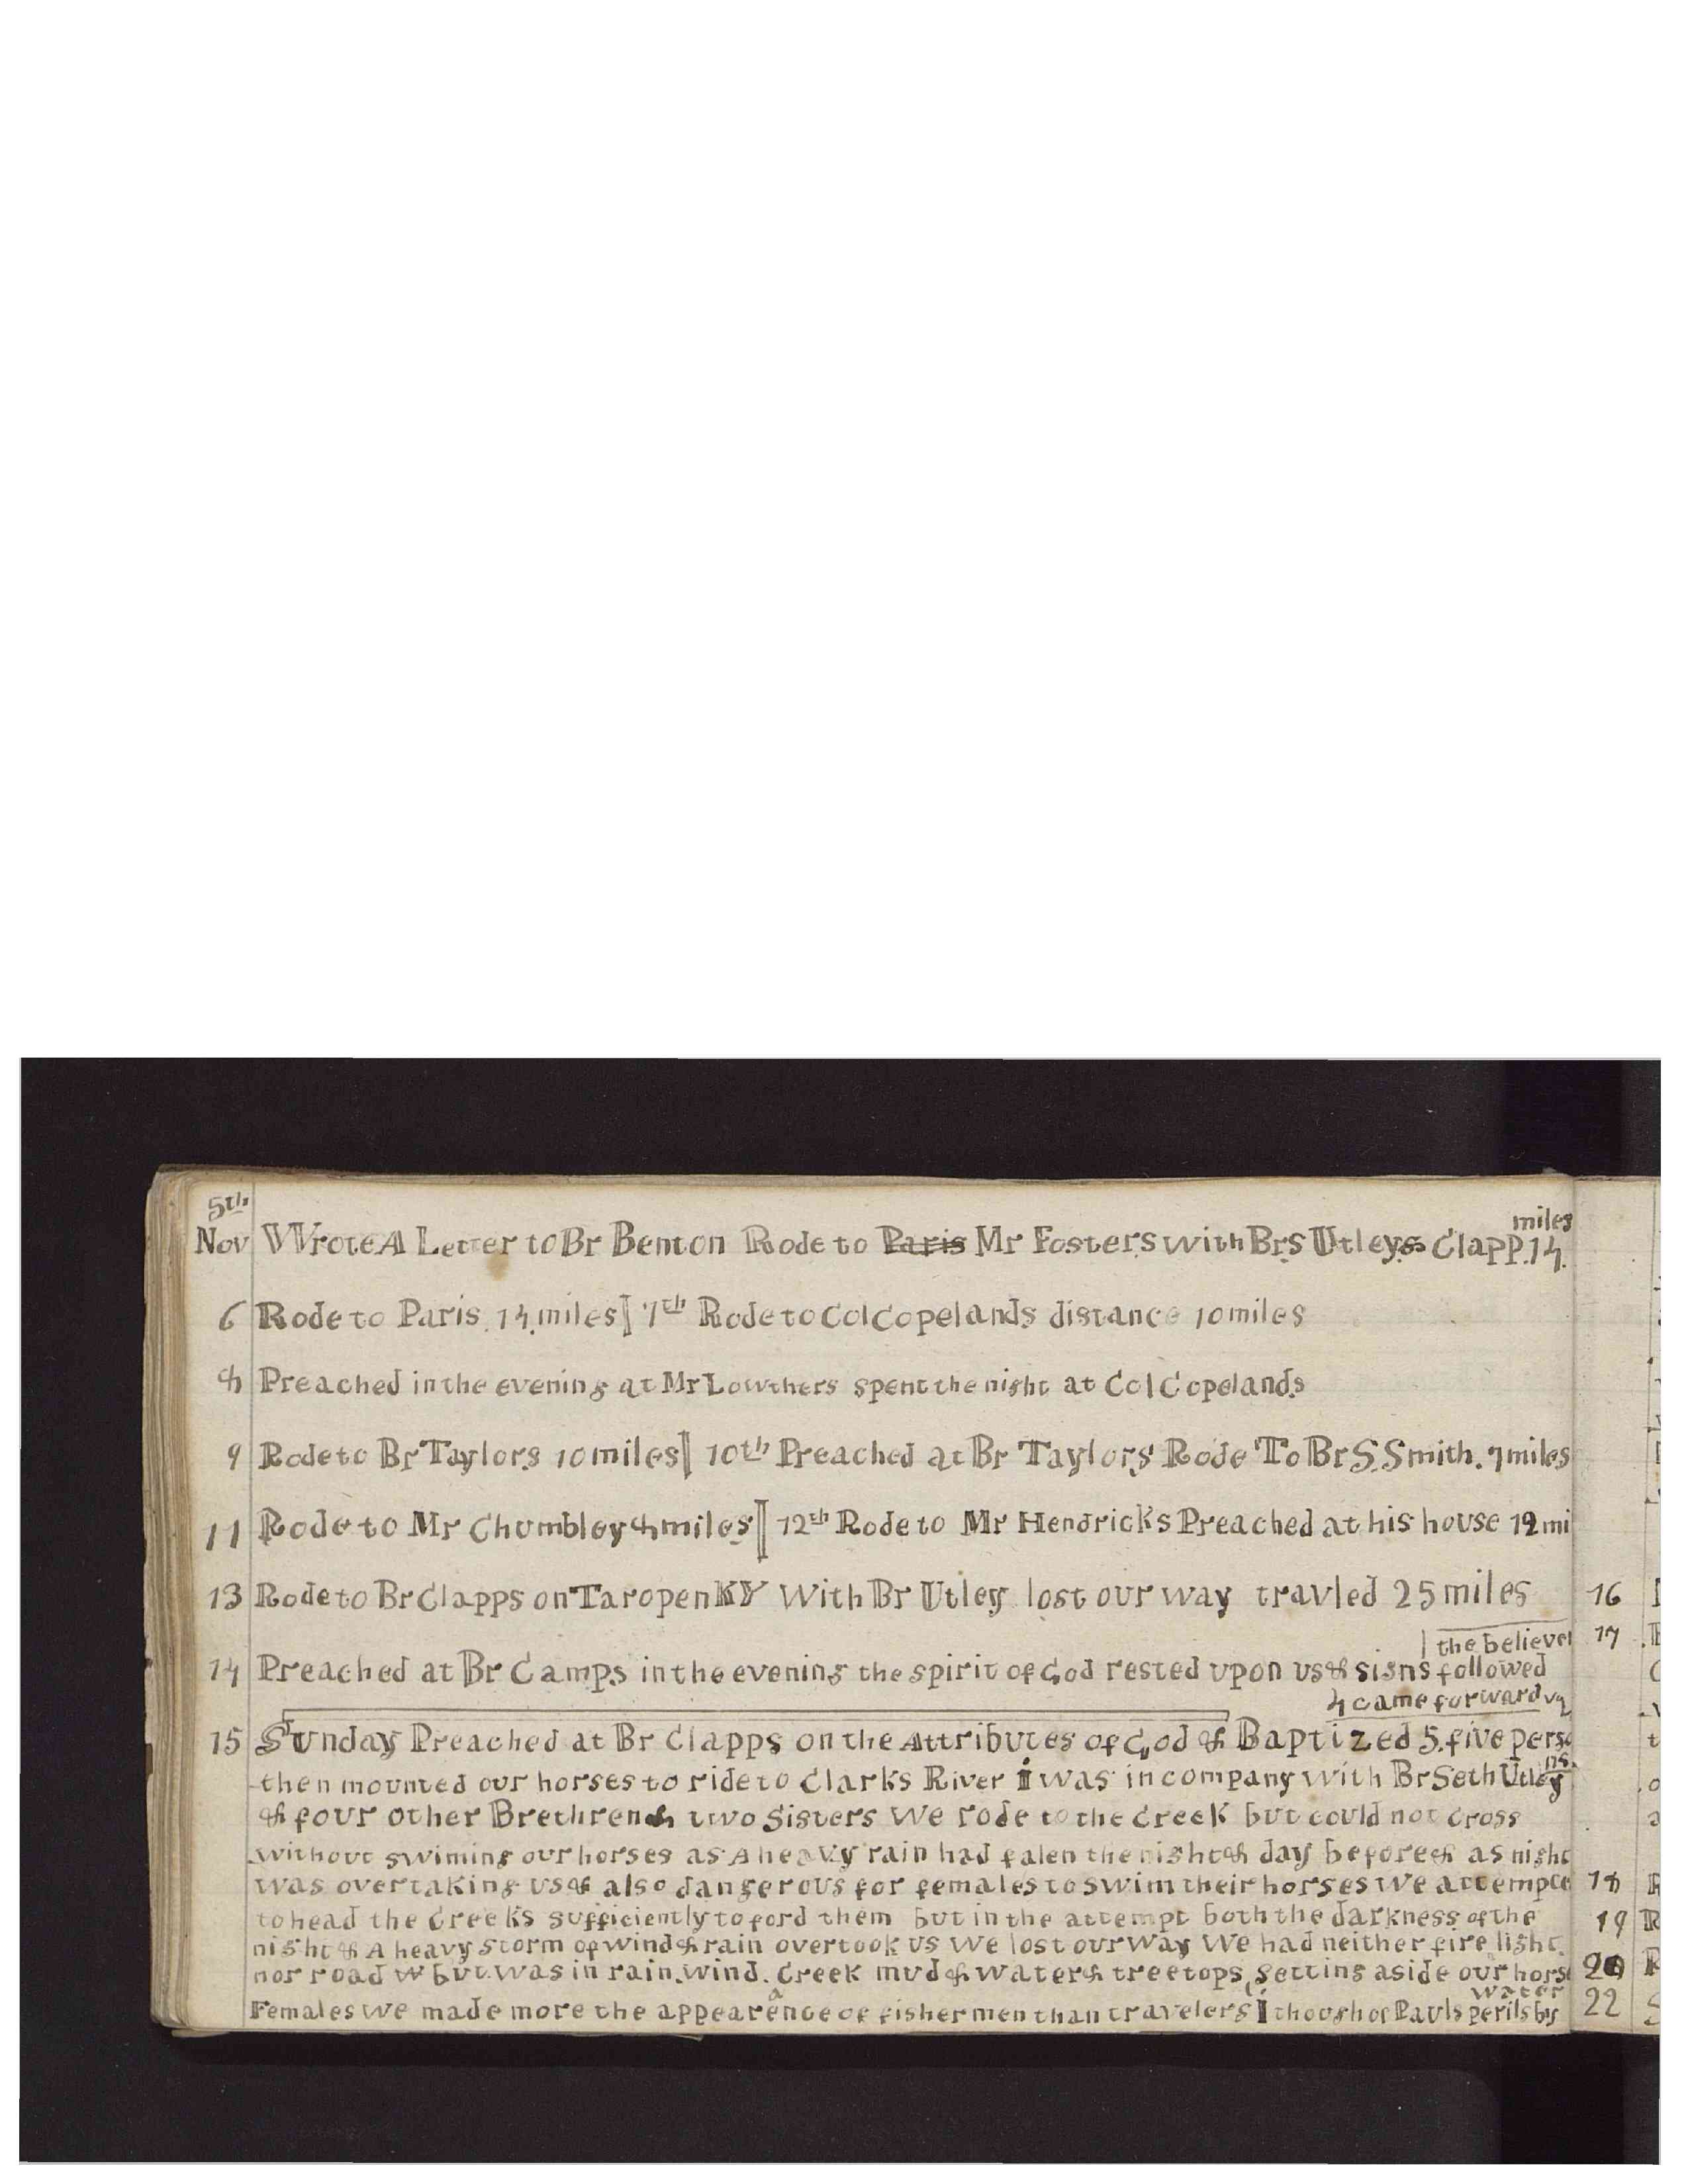 5th miles
Nov Wrote A Letter to Br Benton Rode to Paris Mr Fosters with Brs Utley & Clapp. 14.
6 Rode to Paris 14 miles] 7th Rode to Col Copelands distance 10 miles
8 Preached in the evening at Mr Lowthers spent the night at Col Copelands
9 Rode to Br Taylors 10 miles] 10th Preached at Br Taylors Rode To Br S. Smith. 7 miles
11 Rode to Mr Chumbley 8 miles] 12th Rode to Mr Hendricks Preached at his house 12 mi
13 Rode to Br Clapps on Taropen KY With Br Utley lost our way travled 25 miles
the believer
14 Preached at Br Camps in the evening the spirit of God rested upon us & signs followed
4 came forward
15 Sunday Preached at Br Clapps on the Attributes of God & Baptized 5. five perso
ns.
then mounted our horses to ride to Clarks River i was in company with Br Seth Utley
& four other Brethren & two Sisters We rode to the Creek but could not cross
without swiming our horses as A heavy rain had falen the night & day before & as night
was overtaking us & also dangerous for females to swim their horses We attempte
to head the Creeks sufficiently to ford them but in the attempt both the darkness of the
night & A heavy storm of wind & rain overtook us We lost our way We had neither fire light
nor road but was in rain. wind. Creek mud & water & treetops, Setting aside our hors
a water
Females we made more the appearence of fishermen than travelers i though of Pauls perils by
16
17
18
19
20
22